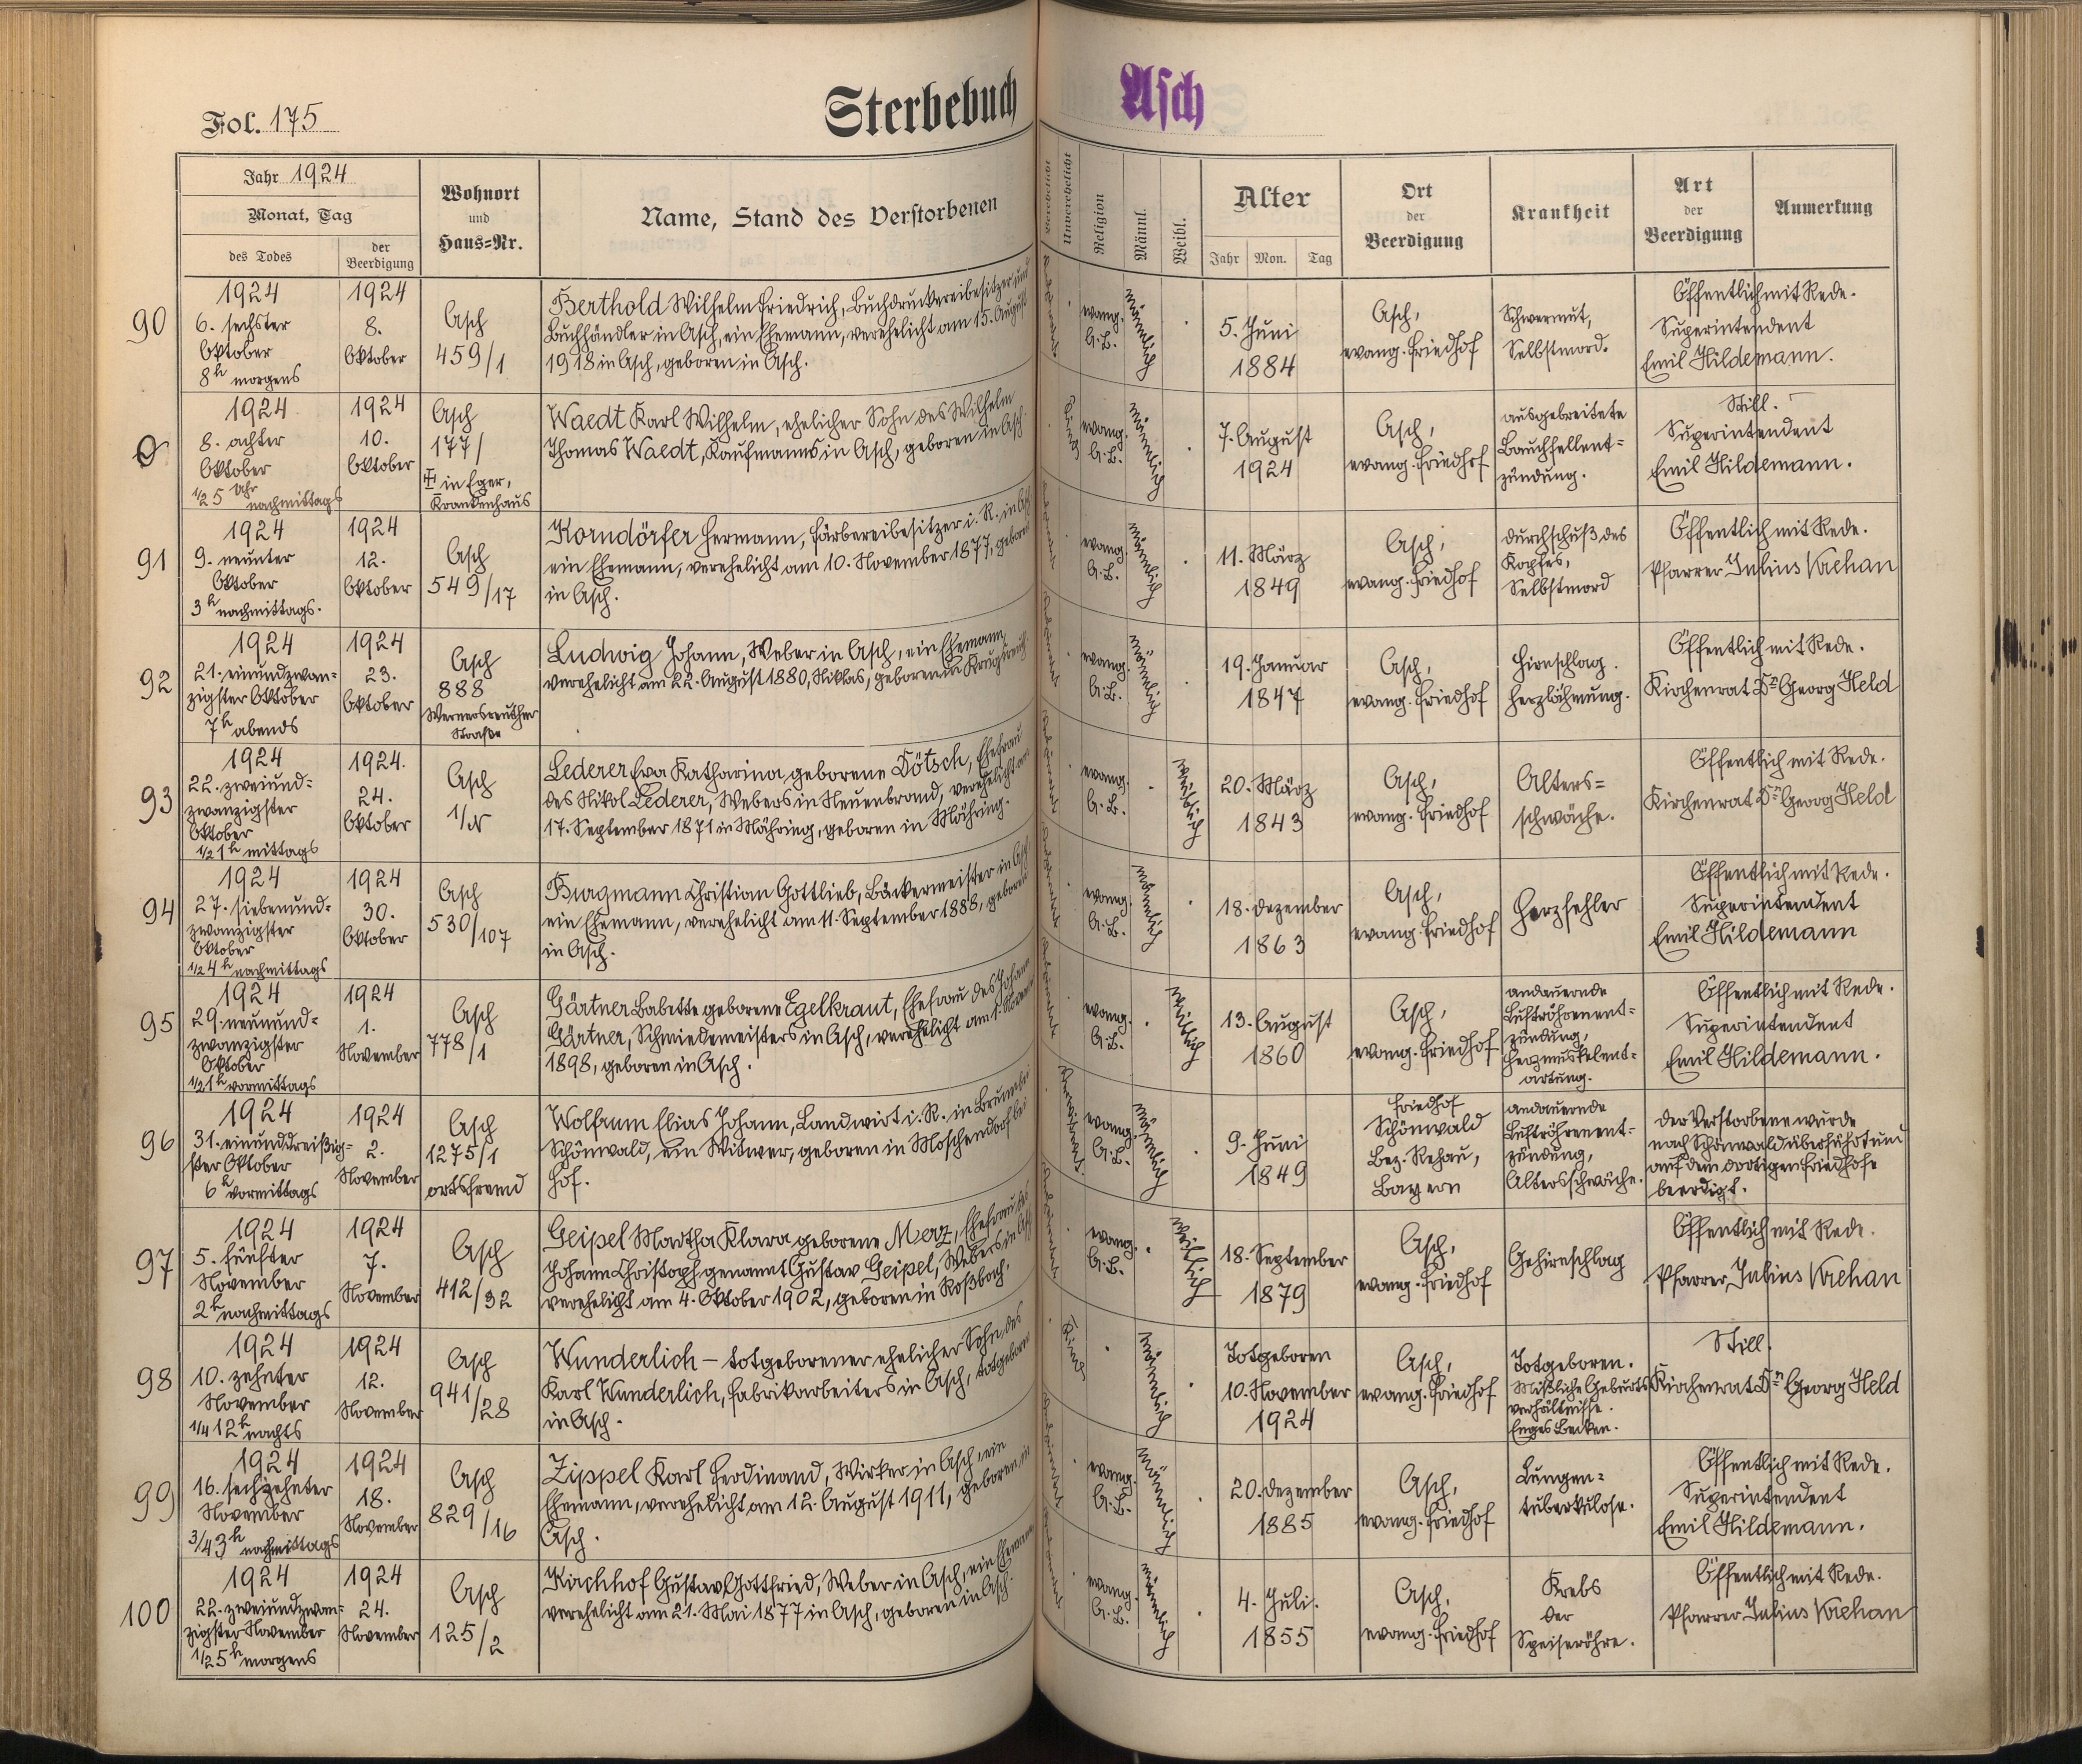 Fol. 175
Sterbebuch
Asch
Jahr 1924
Monat, Tag
des Todes
der
Beerdigung
Wohnort
und
Haus=Nr.
Name, Stand des Verstorbenen
Verehelicht
Unverehelicht
Religion
Männl.
Weibl.
Alter
Jahr
Mon.
Tag
Ort
der
Beerdigung
Krankheit
Art
der
Beerdigung
Anmerkung
90
1924
6. sechster
Oktober
8h morgens
1924
8.
Oktober
Asch
459/1
Berthold Wilhelm Friedrich, Buchdruckereibesitzer und
Buchhändler in Asch, ein Ehemann, verehelicht am 15. August
1918 in Asch, geboren in Asch.
evang.
A.B.
männlich
5. Juni
1884
Asch,
evang. Friedhof
Schwermut,
Selbstmord.
Öffentlich mit Rede.
Superintendent
Emil Hildemann.
1924
8. achter
Oktober
1/2 5 Uhr
nachmittags
1924
10.
Oktober
Asch
177/
in Eger,
Krankenhaus
Waedt Karl Wilhelm, ehelicher Sohn des Wilhelm
Thomas Waedt, Kaufmanns in Asch, geboren in Asch
Kind
evang.
A.B.
männlich
7. August
1924
Asch,
evang. Friedhof
ausgebreitete
Bauchfellent=
zündung.
Still.
Superintendent
Emil Hildemann.
91
1924
9. neunter
Oktober
3h nachmittags.
1924
12.
Oktober
Asch
549/17
Korndörfer Hermann, Färbereibesitzer i. R. in Asch
ein Ehemann, verehelicht am 10. November 1877, geboren
in Asch.
evang.
A.B.
männlich
11. März
1849
Asch,
evang. Friedhof
Durchschuß des
Kopfes,
Selbstmord
Öffentlich mit Rede.
Pfarrer Julius Krehan
92
1924
21. einundzwan=
zigster Oktober
7h abends
1924
23.
Oktober
Asch
888
Wernersreuther
Straße
Ludwig Johann, Weber in Asch, ein Ehemann,
verehelicht am 22. August 1880, Niklas, geboren in Krugsreuth
evang.
A.B.
männlich
19. Januar
1847
Asch,
evang. Friedhof
Hirnschlag.
Herzlähmung.
Öffentlich mit Rede.
Kirchenrat Dr. Georg Held
93
1924
22. zweiund=
zwanzigster
Oktober
1/2 1h mittags
1924.
24.
Oktober
Asch
1/N
Lederer Eva Katharina geborene Dötsch, Ehefrau
des Nikol Lederer, Webers in Neuenbrand, verehelicht am
17. September 1871 in Mähring, geboren in Mähring.
evang.
A.B.
weiblich
20. März
1843
Asch,
evang. Friedhof
Alters=
schwäche.
Öffentlich mit Rede.
Kirchenrat Dr. Georg Held
94
1924
27. siebenund=
zwanzigster
Oktober
1/2 4h nachmittags
1924
30.
Oktober
Asch
530/107
Burgmann Christian Gottlieb, Bäckermeister in Asch,
ein Ehemann, verehelicht am 11. September 1888, geboren
in Asch.
evang.
A.B.
männlich
18. Dezember
1863
Asch,
evang. Friedhof
Herzfehler
Öffentlich mit Rede.
Superintendent
Emil Hildemann
95
1924
29. neunund=
zwanzigster
Oktober
1/2 1h vormittags
1924
1.
November
Asch
778/1
Gärtner Babette geborene Egelkraut, Ehefrau des Johann
Gärtner, Schmiedemeisters in Asch, verehelicht am 1. November
1898, geboren in Asch.
evang.
A.B.
weiblich
13. August
1860
Asch,
evang. Friedhof
andauernde
Luftröhrenent=
zündung,
Herzmuskelent=
artung.
Öffentlich mit Rede.
Superintendent
Emil Hildemann.
96
1924
31. einunddreißig=
ster Oktober
6h vormittags
1924
2.
November
Asch
1275/1
ortsfremd
Wolfrum Elias Johann, Landwirt i. R. in Brunn bei
Schönwald, ein Witwer, geboren in Moschendorf bei
Hof.
evang.
A.B.
männlich
9. Juni
1849
Friedhof
Schönwald
Bez. Rehau,
Bayern
andauernde
Luftröhrenent=
zündung,
Altersschwäche.
Der Verstorbene wurde
nach Schönwald überführt und
auf dem dortigen Friedhofe
beerdigt.
97
1924
5. fünfter
November
2h nachmittags
1924
7.
November
Asch
412/32
Geipel Martha Klara geborene Merz, Ehefrau des
Johann Christoph genannt Gustav Geipel, Webers in Asch
verehelicht am 4. Oktober 1902, geboren in Roßbach.
evang.
A.B.
weiblich
18. September
1879
Asch,
evang. Friedhof
Gehirnschlag
Öffentlich mit Rede.
Pfarrer Julius Krehan
98
1924
10. zehnter
November
1/4 12h nachts
1924
12.
November
Asch
941/28
Wunderlich – totgeborener ehelicher Sohn des
Karl Wunderlich, Fabrikarbeiters in Asch, totgeboren
in Asch.
Kind
männlich
Totgeboren
10. November
1924
Asch,
evang. Friedhof
Totgeboren.
Mißliche Geburts
verhältnisse.
Enges Becken.
Still.
Kirchenrat Dr. Georg Held
99
1924
16. sechzehnter
November
3/4 3h nachmittags
1924
18.
November
Asch
829/16
Zippel Karl Ferdinand, Wirker in Asch, ein
Ehemann, verehelicht am 12. August 1911, geboren in
Asch.
evang.
A.B.
männlich
20. Dezember
1885
Asch,
evang. Friedhof
Lungen=
tuberkulose.
Öffentlich mit Rede.
Superintendent
Emil Hildemann.
100
1924
22. zweiundzwan=
zigster November
1/2 5h morgens
1924
24.
November
Asch
125/2
Kirchhof Gustav Gottfried, Weber in Asch, ein Ehemann
verehelicht am 21. Mai 1877 in Asch, geboren in Asch.
evang.
A.B.
männlich
4. Juli.
1855
Asch,
evang. Friedhof
Krebs
der
Speiseröhre.
Öffentlich mit Rede.
Pfarrer Julius Krehan